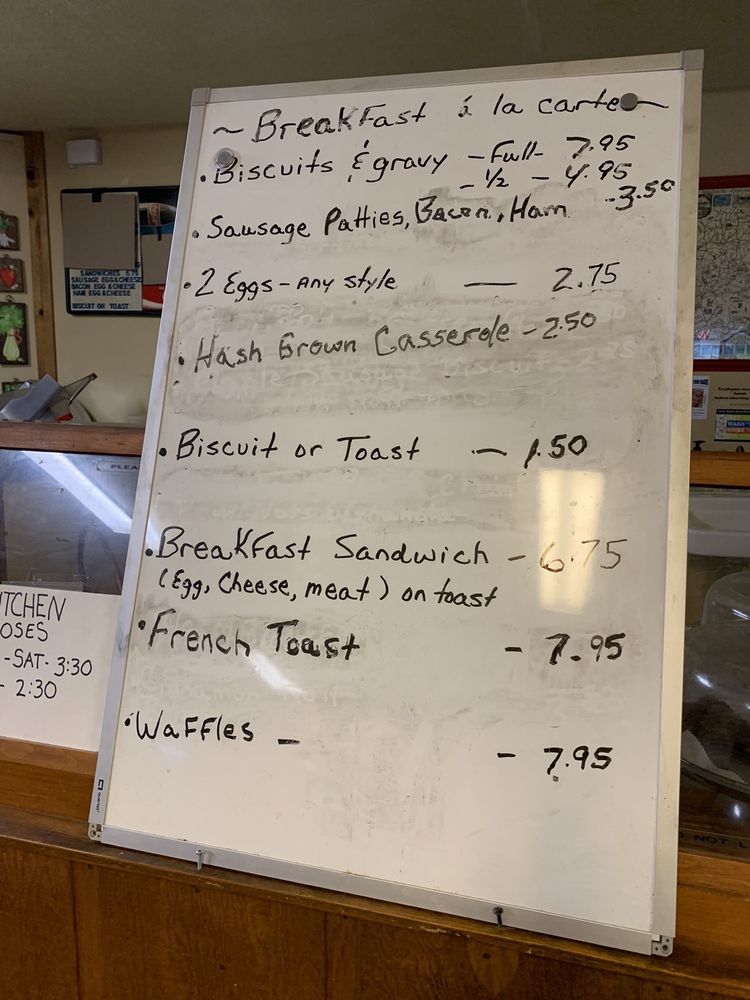 ~ Breakfast á la carte ~
• Biscuits & gravy - Full - 7.95
- ½ - 4.95
• Sausage Patties, Bacon, Ham - 3.50
• 2 Eggs - Any style — 2.75
• Hash Brown Casserole - 2.50
• Biscuit or Toast — 1.50
• Breakfast Sandwich - 6.75
(Egg, Cheese, meat) on toast
• French Toast - 7.95
• Waffles - - 7.95
SANDWICHES 6.75
SAUSAGE EGG & CHEESE
BACON EGG & CHEESE
HAM EGG & CHEESE
BISCUIT OR TOAST
PLEA
ITCHEN
OSES
-SAT- 3:30
- 2:30
NOT L